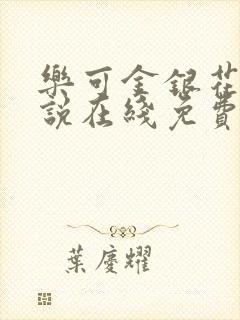 樂可金銀花
說在綫免費
葉慶耀